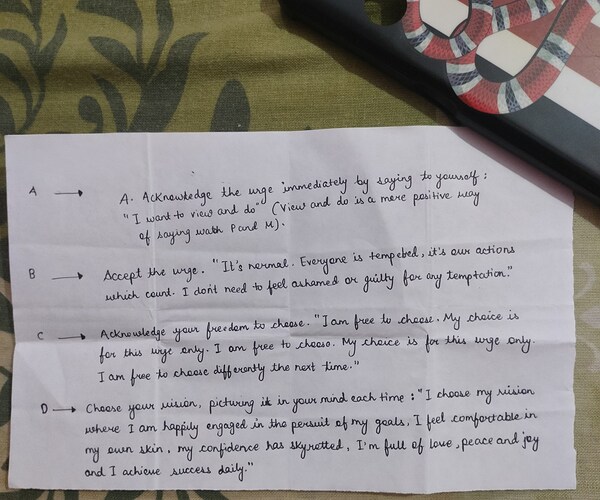 A → A. Acknowledge the urge immediately by saying to yourself :
"I want to view and do" (View and do is a more positive way
of saying watch P and M).
B → Accept the urge. "It's normal. Everyone is tempebed, it's our actions
which count. I don't need to feel ashamed or guilty for any temptation."
C → Acknowledge your freedom to choose. "I am free to choose. My choice is
for this urge only. I am free to choose. My choice is for this urge only.
I am free to choose differently the next time."
D → Choose your vision, picturing it in your mind each time : "I choose my vision
where I am happily engaged in the persuit of my goals, I feel comfortable in
my own skin, my confidence has skyrotted, I'm full of love, peace and joy
and I achieve success daily."